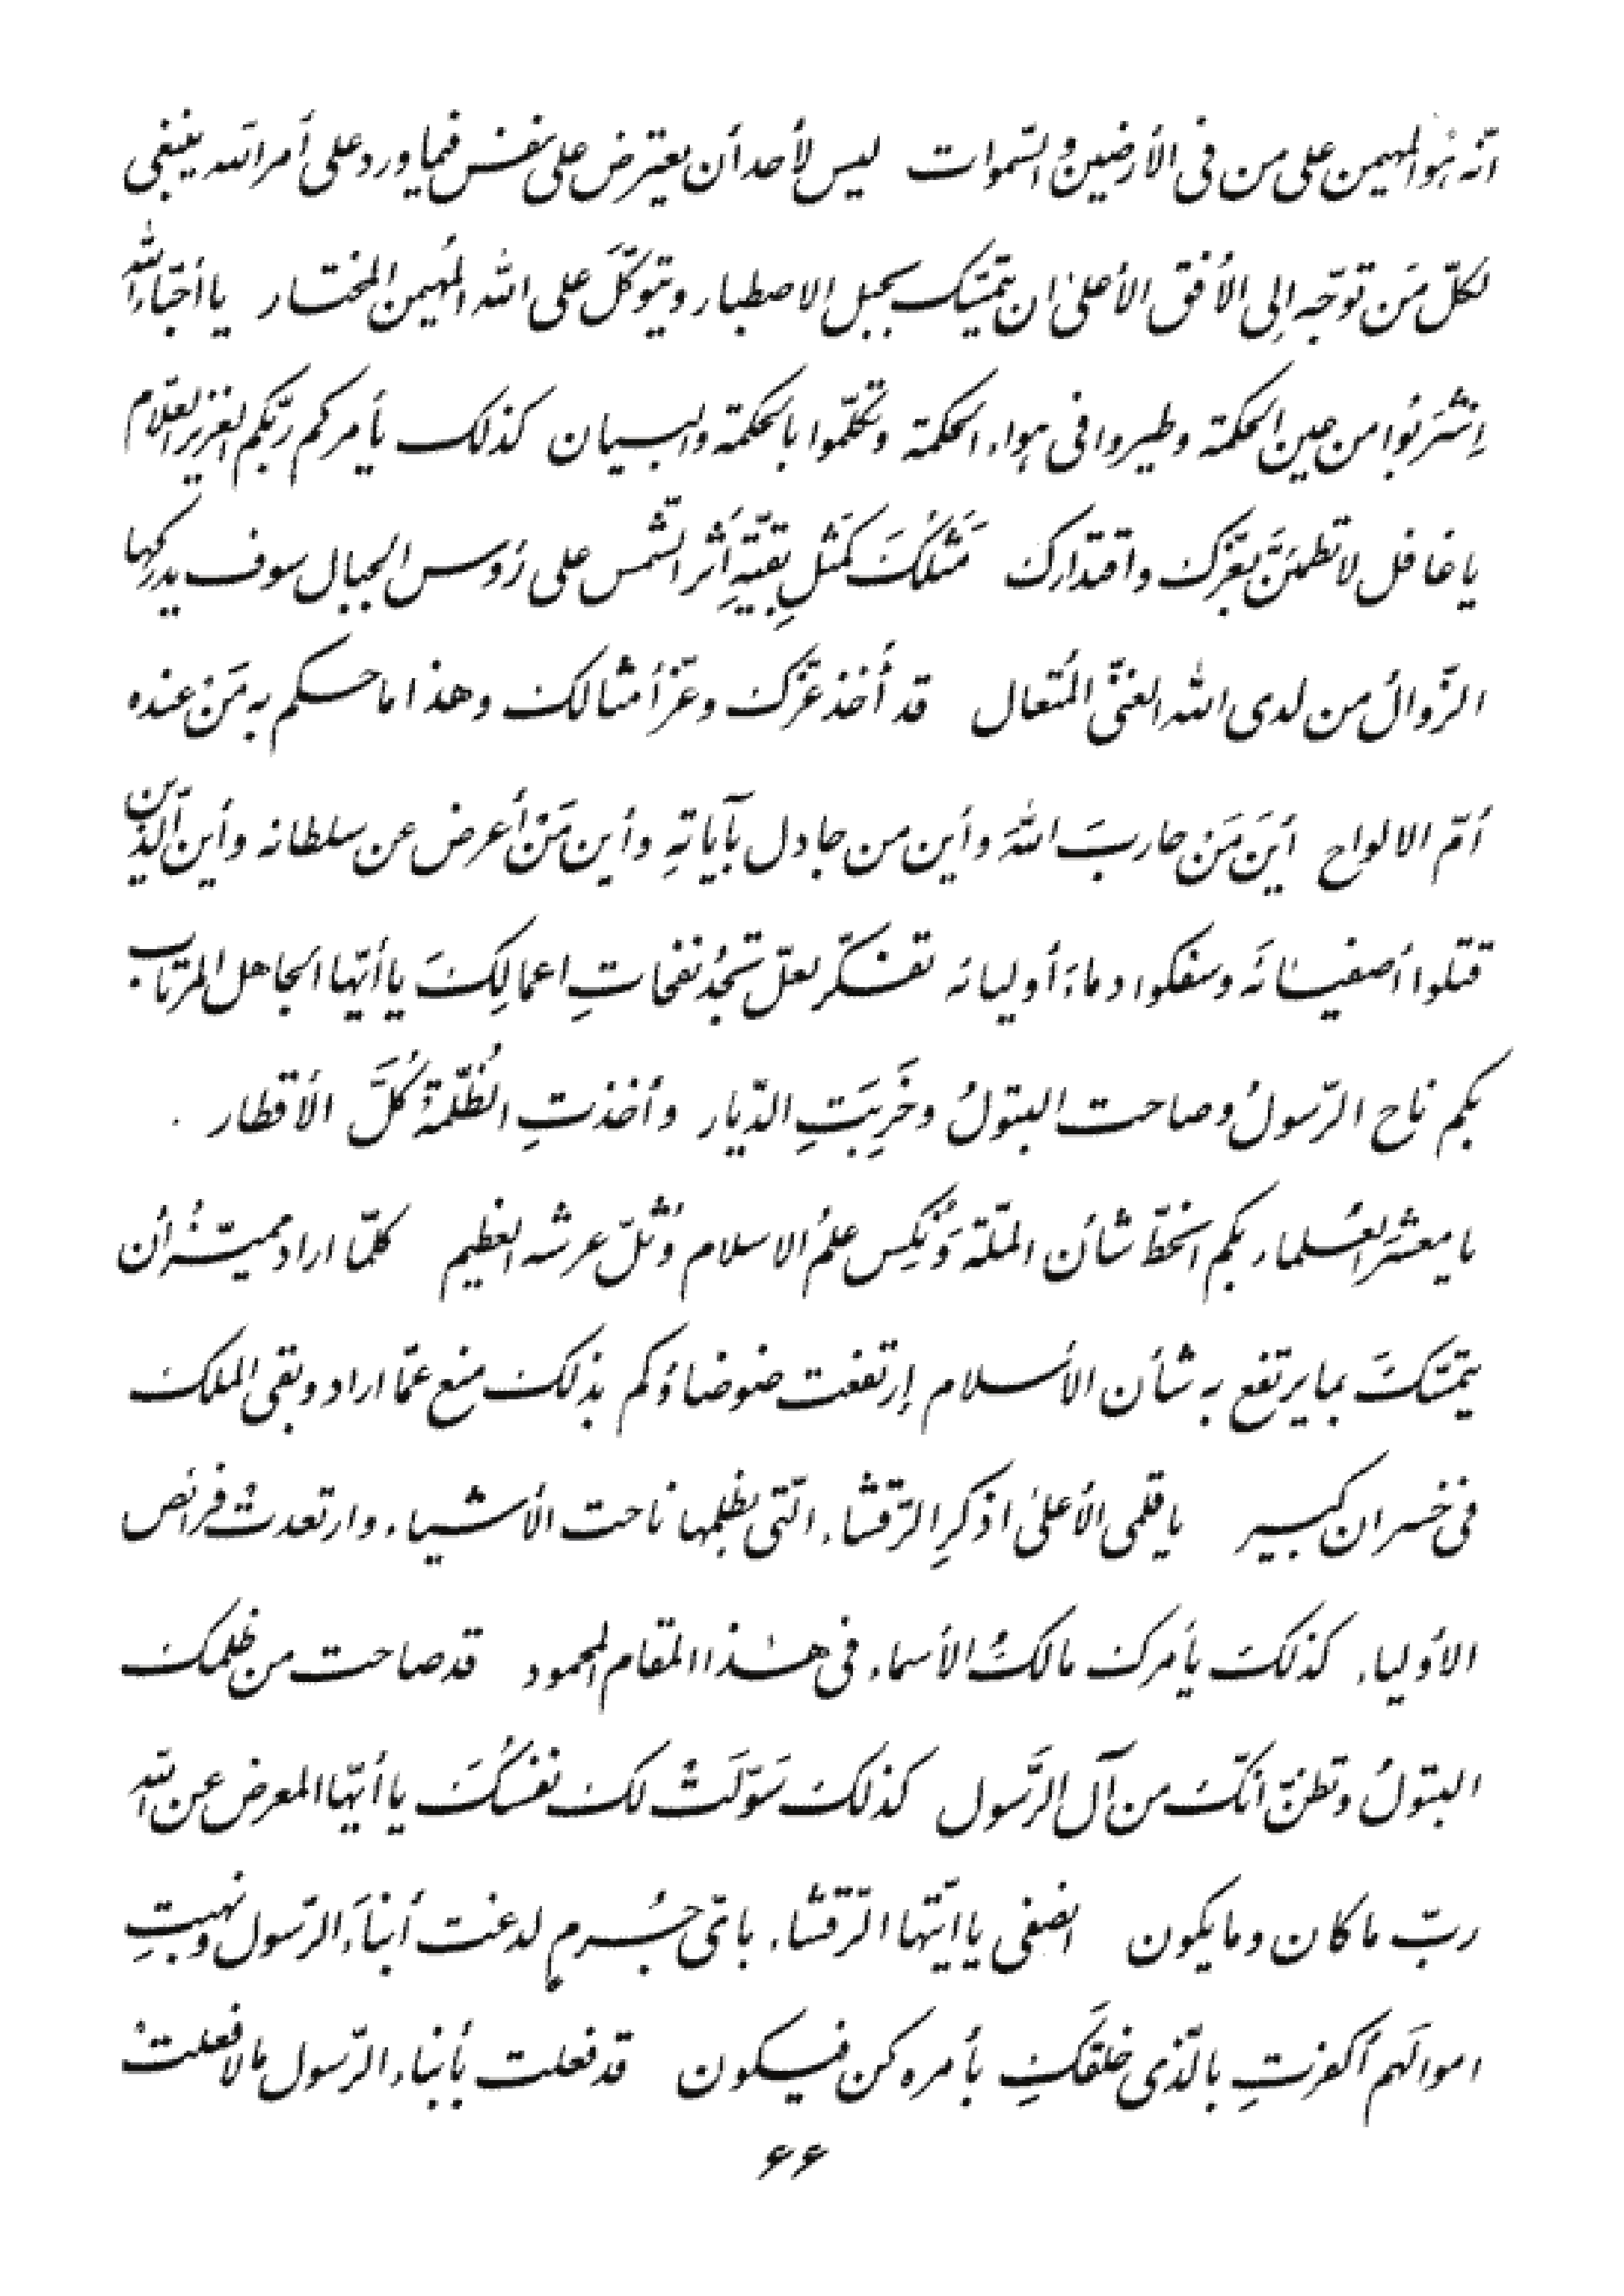 انّه هُوَ المهيمن على من فى الأرضين و السّموات ليس لأحد أن يعترض على نفس فيما ورد على أمر الله ينبغى
لكلّ مَن توجّه إلى الأُفق الأعلىٰ ان يتمسّك بحبل الاصطبار و يتوكّلَ على الله المُهيمن المختار يا أحبّاءَ الله
اِشْرَبُوا من عين الحكمة و طيروا فى هواء الحكمة و تكلّموا بالحكمة و البيان كذلك يأمركم ربّكم العزيز العلّام
يا غافل لا تطمئنَّ بعزّك و اقتدارك مَثَلُكَ كَمَثَلِ بقيّةِ أَثَرِ الشّمس على رُؤوس الجبال سوف يدركها
الزّوالُ من لدى الله الغنىّ المُتعال قد أُخذ عزّك و عزّ أمثالك و هذا ما حكم به مَنْ عنده
أمّ الالواح أينَ مَنْ حاربَ اللهَ و أين من جادل بآياتهِ و أين مَنْ أعرض عن سلطانه و أين الّذين
قتلوا أصفيائَهُ و سفكوا دماءَ أوليائه تفكّر لعلّ تجدُ نفحاتِ اعمالِكَ يا أيّها الجاهل المرتاب
بكم ناح الرّسولُ و صاحت البتولُ و خَرِبَتِ الدّيار و أخذتِ الظُّلمةُ كُلَّ الأقطار .
يا معشرَ العُلماء بكم انحطّ شأن الملّة وَ نُكِس علمُ الاسلام و ثُلّ عرشه العظيم كلّما اراد مميّزٌ أن
يتمسّكَ بما يرتفع به شأن الأسلام إرتفعت ضوضاؤكم بذلك منع عمّا اراد و بقى الملك
فى خسران كبير يا قلمى الأعلىٰ اذكرِ الرّقشاء الّتى بظلمها ناحت الأشياء و ارتعدتْ فرائص
الأولياء كذلك يأمرك مالكُ الأسماء فى هٰذا المقام المحمود قد صاحت من ظلمك
البتولُ و تظنّ انّك من آل الرَّسول كذلك سَوّلَتْ لك نفسُكَ يا أيّها المعرض عن الله
ربّ ما كان و ما يكون انصفى يا ايّتها الرّقشاء بأىّ جُرمٍ لدغت أبناءَ الرّسول و نهبتِ
اموالَهم أكفرتِ بالّذى خلقَكِ بأمره كن فيكون قد فعلت بأبناء الرّسول ما لا فعلتْ
۶۶